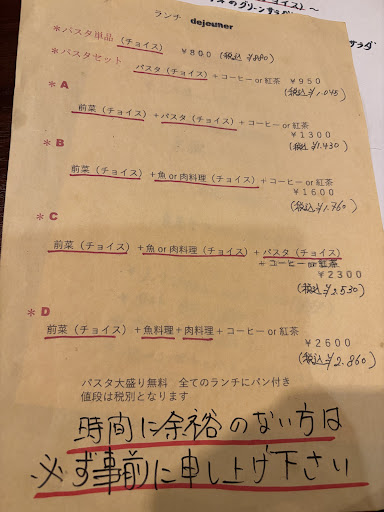 ランチ dejeuner
＊パスタ単品（チョイス） ￥８００ (税込 ¥880)
＊パスタセット パスタ（チョイス）＋コーヒー or 紅茶 ￥９５０
(税込 ¥1.045)
＊A
前菜（チョイス）＋パスタ（チョイス）＋コーヒー or 紅茶
￥１３００
(税込 ¥1.430)
＊B
前菜（チョイス）＋魚 or 肉料理（チョイス）＋コーヒー or 紅茶
￥１６００
(税込 ¥1.760)
＊C
前菜（チョイス）＋魚 or 肉料理（チョイス）＋パスタ（チョイス）
＋コーヒー or 紅茶
￥２３００
(税込 ¥2.530)
＊D
前菜（チョイス）＋魚料理＋肉料理＋コーヒー or 紅茶
￥２６００
(税込 ¥2.860)
パスタ大盛り無料 全てのランチにパン付き
値段は税別となります
時間に余裕のない方は
必ず事前に申し上げ下さい